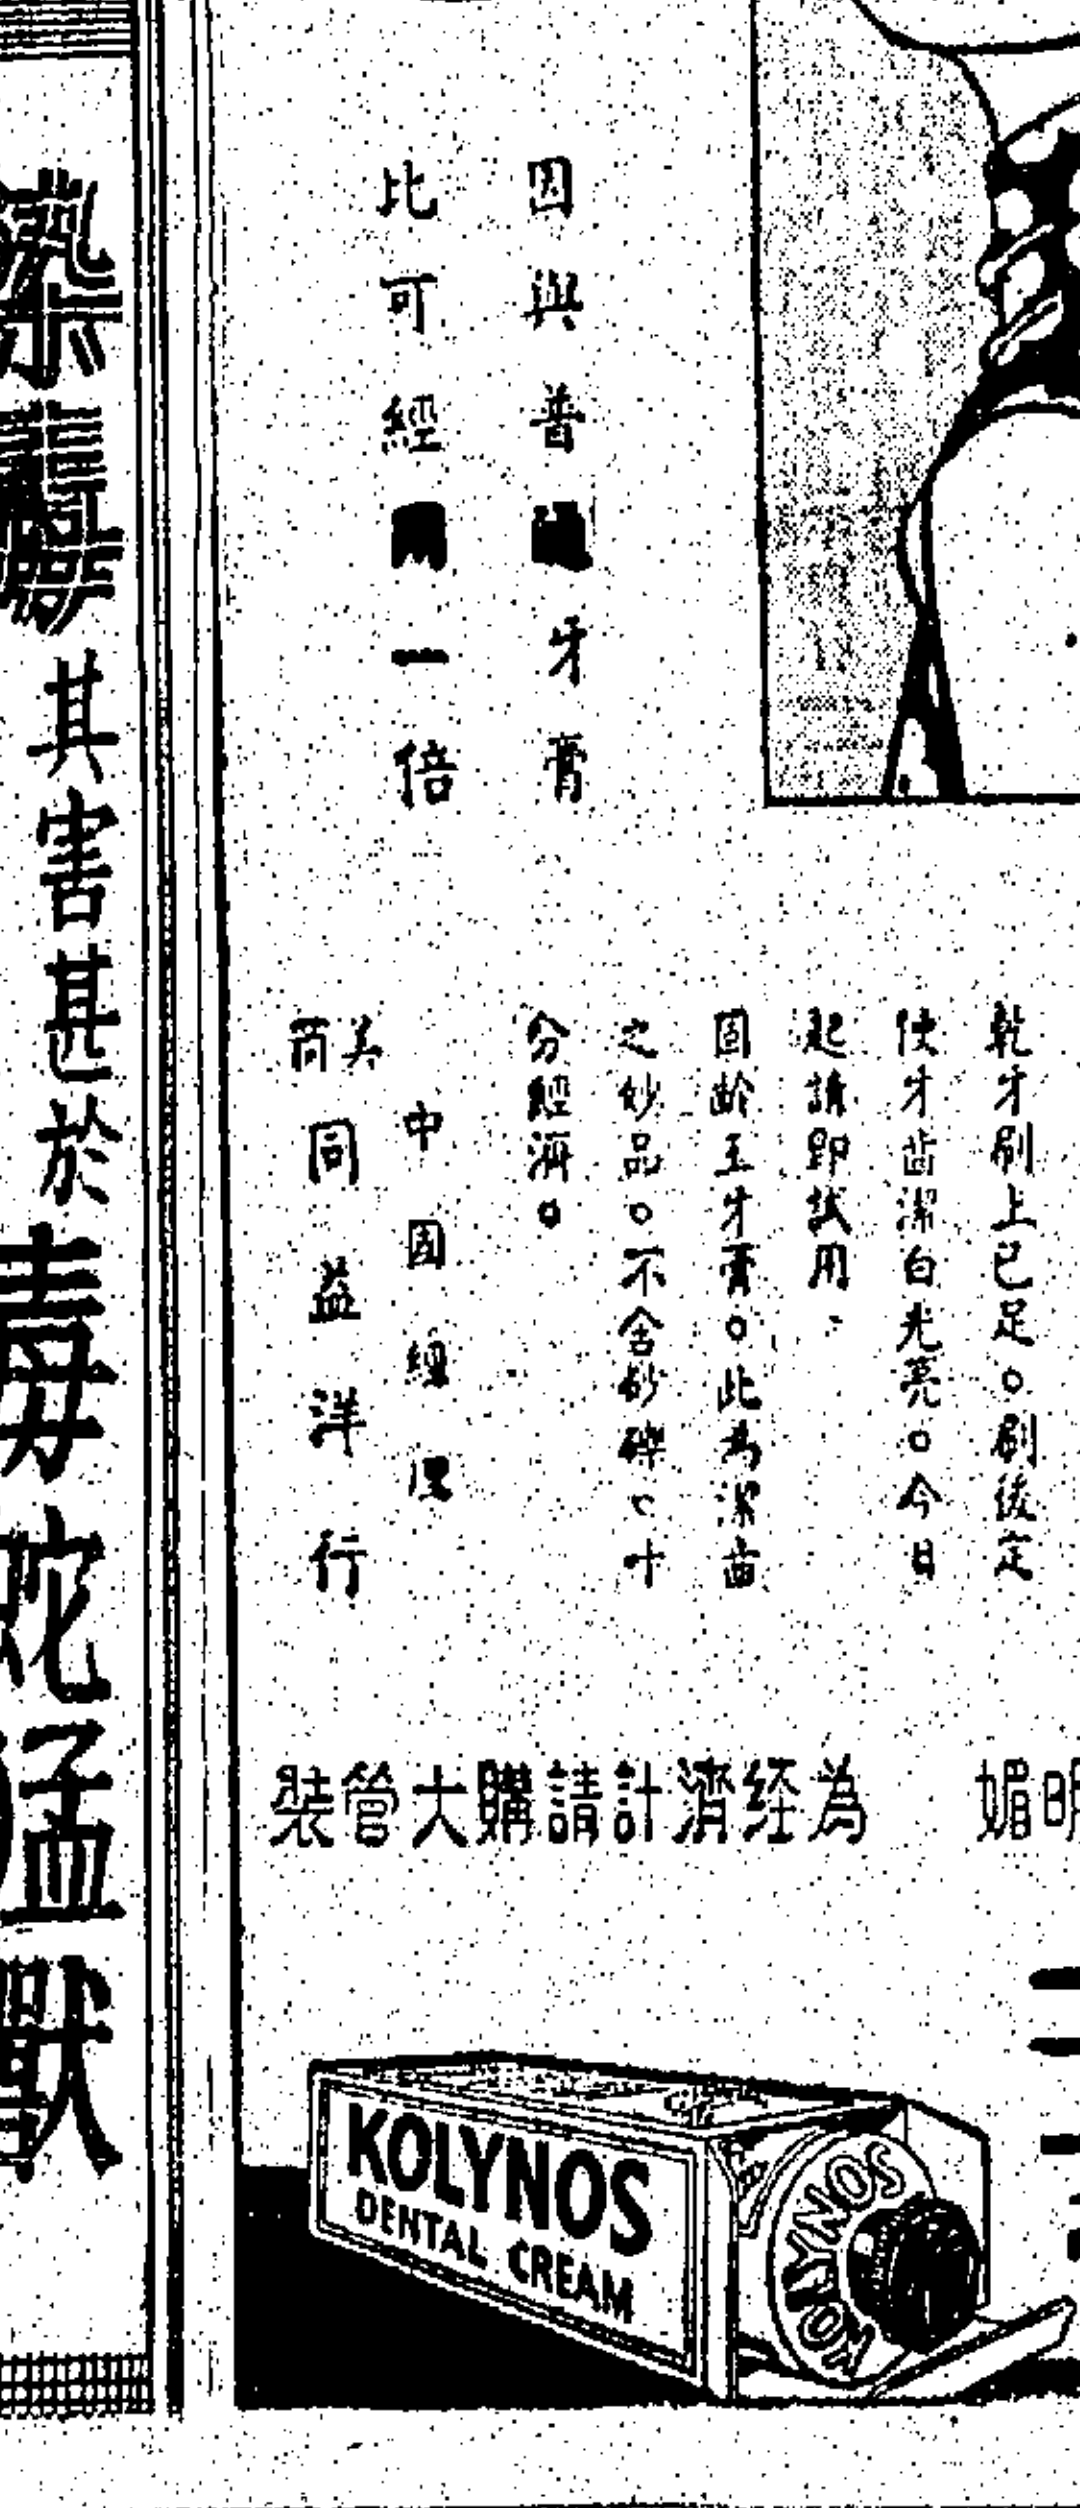 因與普 牙膏
比可經 一倍
乾牙刷上已足。刷後定
使牙齒潔白光亮。今日
起請即試用
固齡玉牙膏。此為潔齒
之妙品。不含砂礫。十
分經濟。
中國經理
美商
同益洋行
明媚
為経濟計請購大管裝
KOLYNOS
DENTAL CREAM
KOLYNOS
其害甚於
毒蛇猛獸